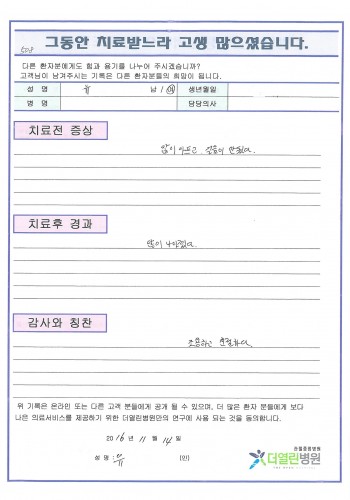 그동안 치료받느라 고생 많으셨습니다.
다른 환자분에게도 힘과 용기를 나누어 주시겠습니까?
고객님이 남겨주시는 기록은 다른 환자분들의 희망이 됩니다.
성 명 유 남 / 여 생년월일
병 명 담당의사
치료전 증상
많이 아프고
치료후 경과
많이 나아졌다.
감사와 칭찬
조용하고 친절하다.
위 기록은 온라인 또는 다른 고객 분들에게 공개 될 수 있으며, 더 많은 환자 분들에게 보다
나은 의료서비스를 제공하기 위한 더열린병원만의 연구에 사용 되는 것을 동의합니다.
2016 년 11 월 14 일
성 명 : 유 (인)
관절중점병원
더열린병원